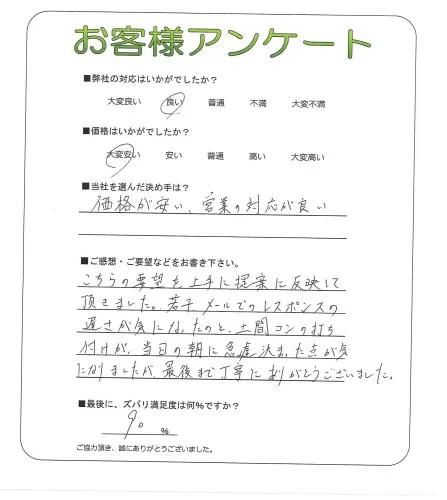 お客様アンケート
■弊社の対応はいかがでしたか？
大変良い 良い 普通 不満 大変不満
■価格はいかがでしたか？
大変安い 安い 普通 高い 大変高い
■当社を選んだ決め手は？
価格が安い、営業の対応が良い
■ご感想・ご要望などをお書き下さい。
こちらの要望を上手に提案に反映して
頂きました。若干メールでのレスポンスの
遅さが気になったのと、土間コンの打ち
付けが、当日の朝に急遽決まった点が気
になりましたが、最後まで丁寧にありがとうございました。
■最後に、ズバリ満足度は何％ですか？
90 ％
ご協力頂き、誠にありがとうございました。